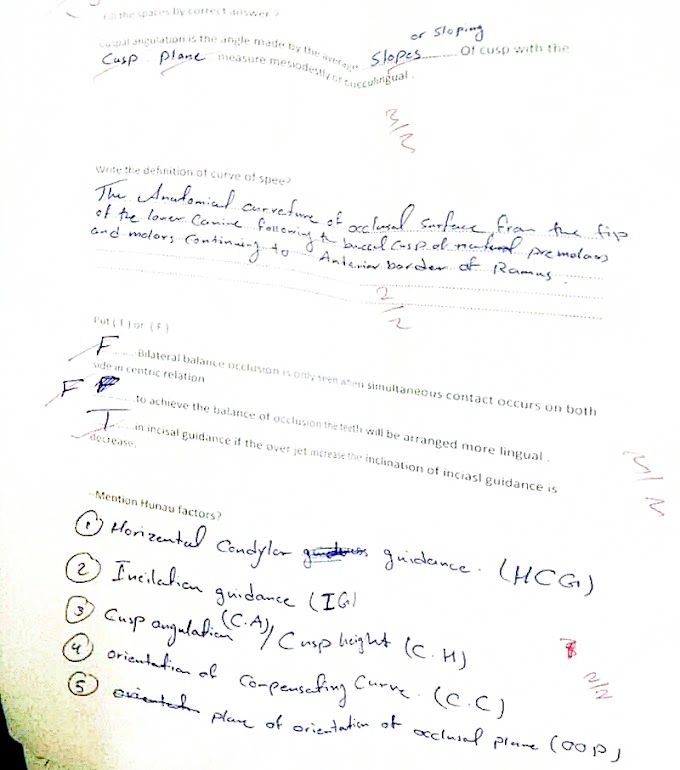 Fill the spaces by correct answer ?
or sloping
Cuspal angulation is the angle made by the average slopes Of cusp with the
Cusp Plane measure mesiodestly or bucculingual .
3/3
Write the definition of curve of spee?
The Anatomical curvature of occlusal surface from the tip
of the lower Canine following the buccal cusp of natural premolars
and molars Continuing to Anterior border of Ramus .
2/2
Put ( T ) or ( F )
F Bilateral balance occlusion is only seen when simultaneous contact occurs on both
side in centric relation
F to achieve the balance of occlusion the teeth will be arranged more lingual .
T in incisal guidance if the over jet increase the inclination of inciasl guidance is
decrease.
3/3
-Mention Hunau factors?
① Horizental Condylar guidance. (HCG)
② guidance (IG)
③ Cusp angulation (C.A) / Cusp height (C.H)
④ orientation of Compensating Curve. (C.C)
2/2
⑤ plane of orientation of occlusal plane (OOP)